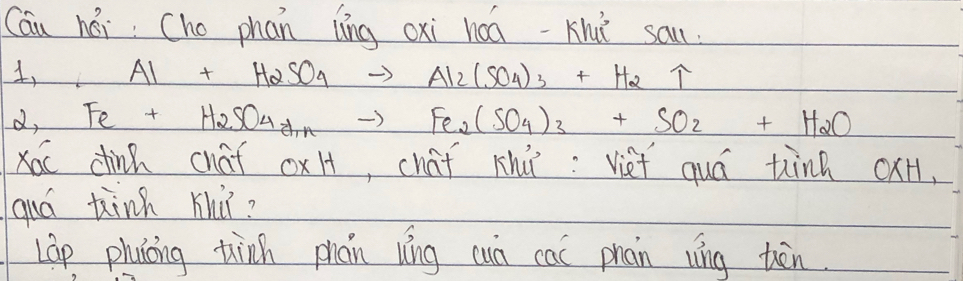 Câu hỏi : Cho phản ứng oxi hoá - khử sau:
1, Al + H2SO4 → Al2(SO4)3 + H2 ↑
2, Fe + H2SO4 đ,n → Fe2(SO4)3 + SO2 + H2O
Xác định chất oxH, chất khử : Viết quá trình OXH,
quá trình khử?
Lập phương trình phản ứng của các phản ứng trên.